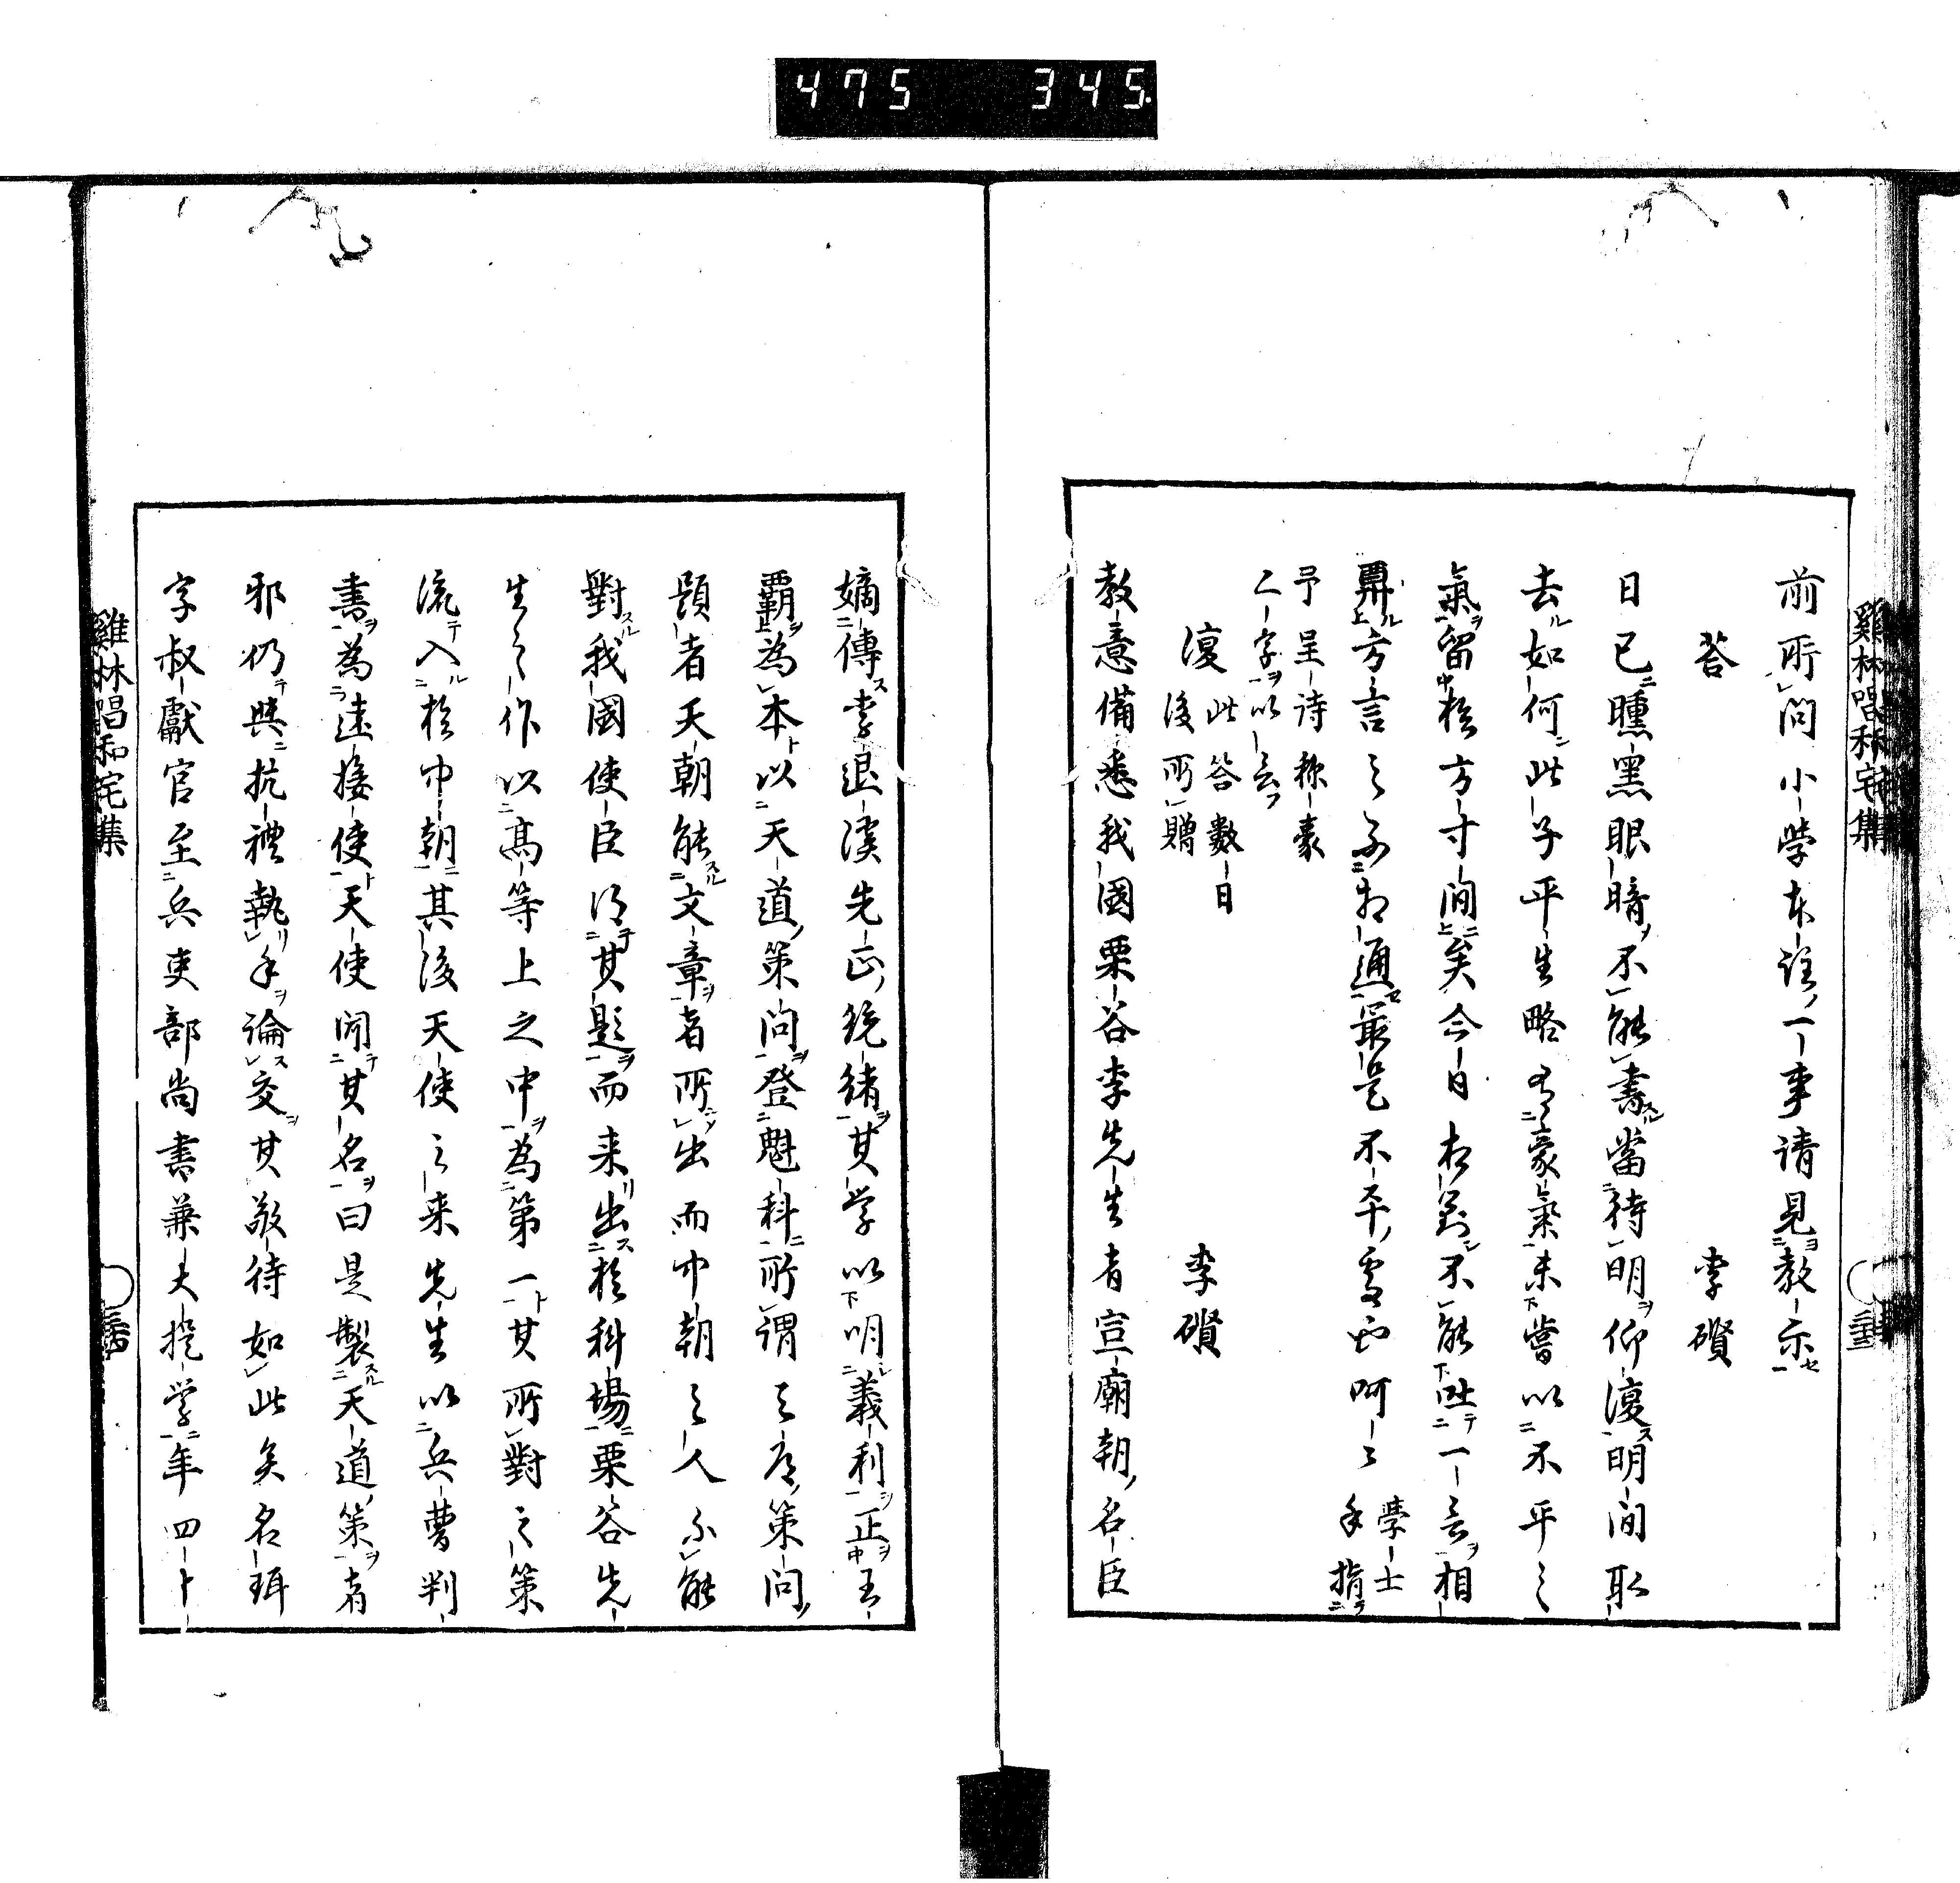 475 345
雞林唱和宅集
前所問小學本註一事請見教示
答 李礥
日已曛黑眼暗不能書當待明仰復明間耿
去如何此子平生略有豪氣未嘗以不平之
氣留於方寸間矣今日相對不能吐一言相
異方言之不相通最是不平處也呵々 學士手指
予呈詩称豪
二字以言
復 此答數日後所贈 李礥
教意備悉我國栗谷李先生者宣廟朝名臣
嫡傳李退溪先正統緒其学以明義利正王
覇為本以天道策問登魁科所謂之道策問
題者天朝能文章者所出而中朝之人不能
對我國使臣得其題而来出於科場栗谷先
生之作以高等上之中為第一其所對之策
流入於中朝其後天使之来先生以兵曹判
書為遠接使天使聞其名曰是製天道策者
邪仍與抗禮執手論交其敬待如此矣名珥
字叔獻官至兵吏部尚書兼大提学年四十
雞林唱和宅集